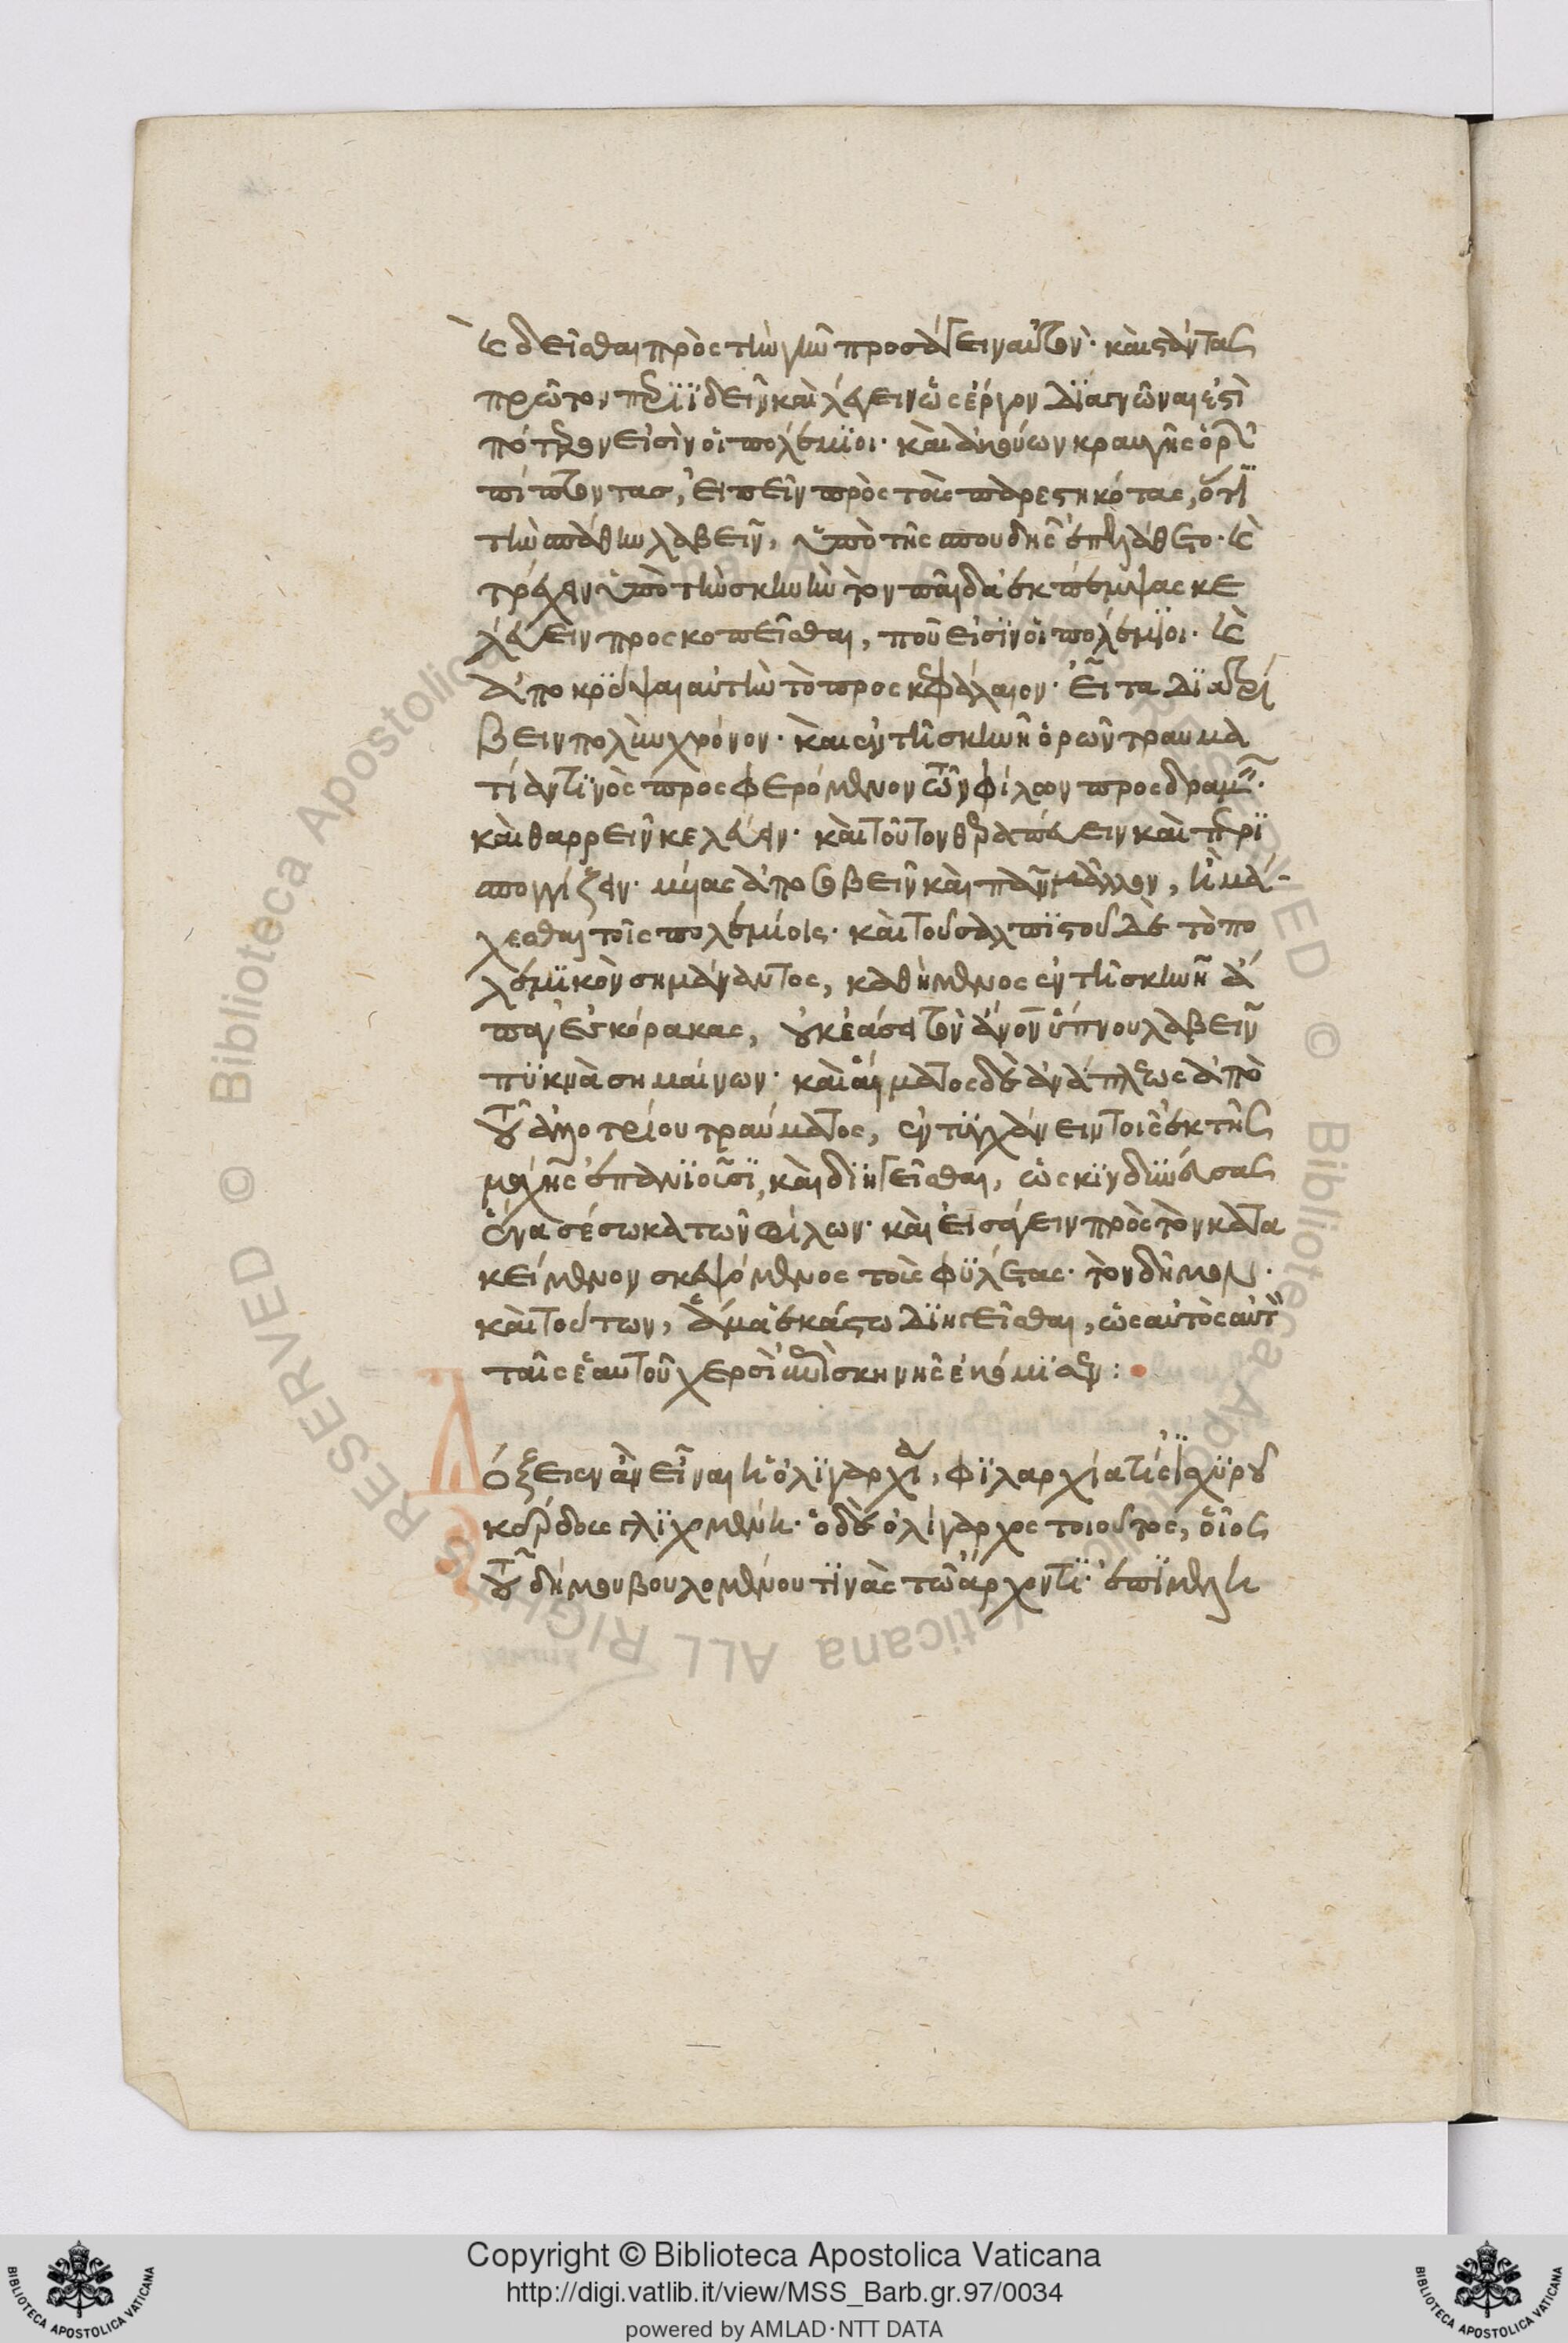 καὶ δεῖσθαι πρὸς τὴν γῆν προσάγειν αὐτὸν· καὶ στάντας
πρῶτον περιϊδεῖν καὶ λέγειν ὡς ἔργον διαγνῶναι ἐστὶ
πότεροι εἰσὶν οἱ πολέμιοι· καὶ ἀκούων κραυγῆς ὁρᾶ
πίπτοντας, εἰπεῖν πρὸς τοὺς παρεστηκότας, ὅτι
τὴν σπάθην λαβεῖν, ὑπὸ τῆς σπουδῆς ἐπελάθετο· καὶ
τρέχειν ὑπὸ τὴν σκηνὴν τὸν παῖδα ἐκπέμψας κε
λεύειν προσκοπεῖσθαι, ποῦ εἰσὶν οἱ πολέμιοι· καὶ
ἀποκρύψαι αὐτὴν τὸ προσκεφάλαιον· εἶτα διατρί
βειν πολὺν χρόνον· καὶ ἐν τῇ σκηνῇ ὁρῶν τραυμα
τίαν τινὸς προσφερόμενον τῶν φίλων προσδραμὼν·
καὶ θαρρεῖν κελεύειν· καὶ τοῦτον θεραπεύειν καὶ περι
σπογγίζειν· μυίας ἀποσοβεῖν καὶ πᾶν μᾶλλον, ἢ μά-
χεσθαι τοῖς πολεμίοις· καὶ τοῦ σαλπιστοῦ δὲ τὸ πο
λεμικὸν σημάναντος, καθήμενος ἐν τῇ σκηνῇ ἄ
παγ' ἐς κόρακας, οὐκ ἐάσει τὸν ἄνον ὕπνου λαβεῖν
πυκνὰ σημαίνων· καὶ αἵματος δὲ ἀνάπλεως ἀπὸ
τοῦ ἀλλοτρίου τραύματος, ἐντυγχάνειν τοῖς ἐκ τῆς
μάχης ἐπανιοῦσι, καὶ διηγεῖσθαι, ὡς κινδυνεύσας
ἕνα σέσωκα τῶν φίλων· καὶ εἰσάγειν πρὸς τὸν κατα
κείμενον σκεψόμενος τοὺς φυλέτας· τὸν δῆμον·
καὶ τούτων, ἅμα ἑκάστω διηγεῖσθαι, ὡς αὐτὸς αὐτὸν
ταῖς ἑαυτοῦ χερσὶν ἐπὶ σκηνῆς ἐκόμισεν:
Δόξειεν ἂν εἶναι ἡ ὀλιγαρχία, φιλαρχία τίς ἰσχυροῦ
κέρδους γλιχομένη· ὁ δὲ ὀλίγαρχος τοιοῦτος, οἷος
τοῦ δήμου βουλομένου τινὰς τῶ ἄρχοντι· ἐπιμελη